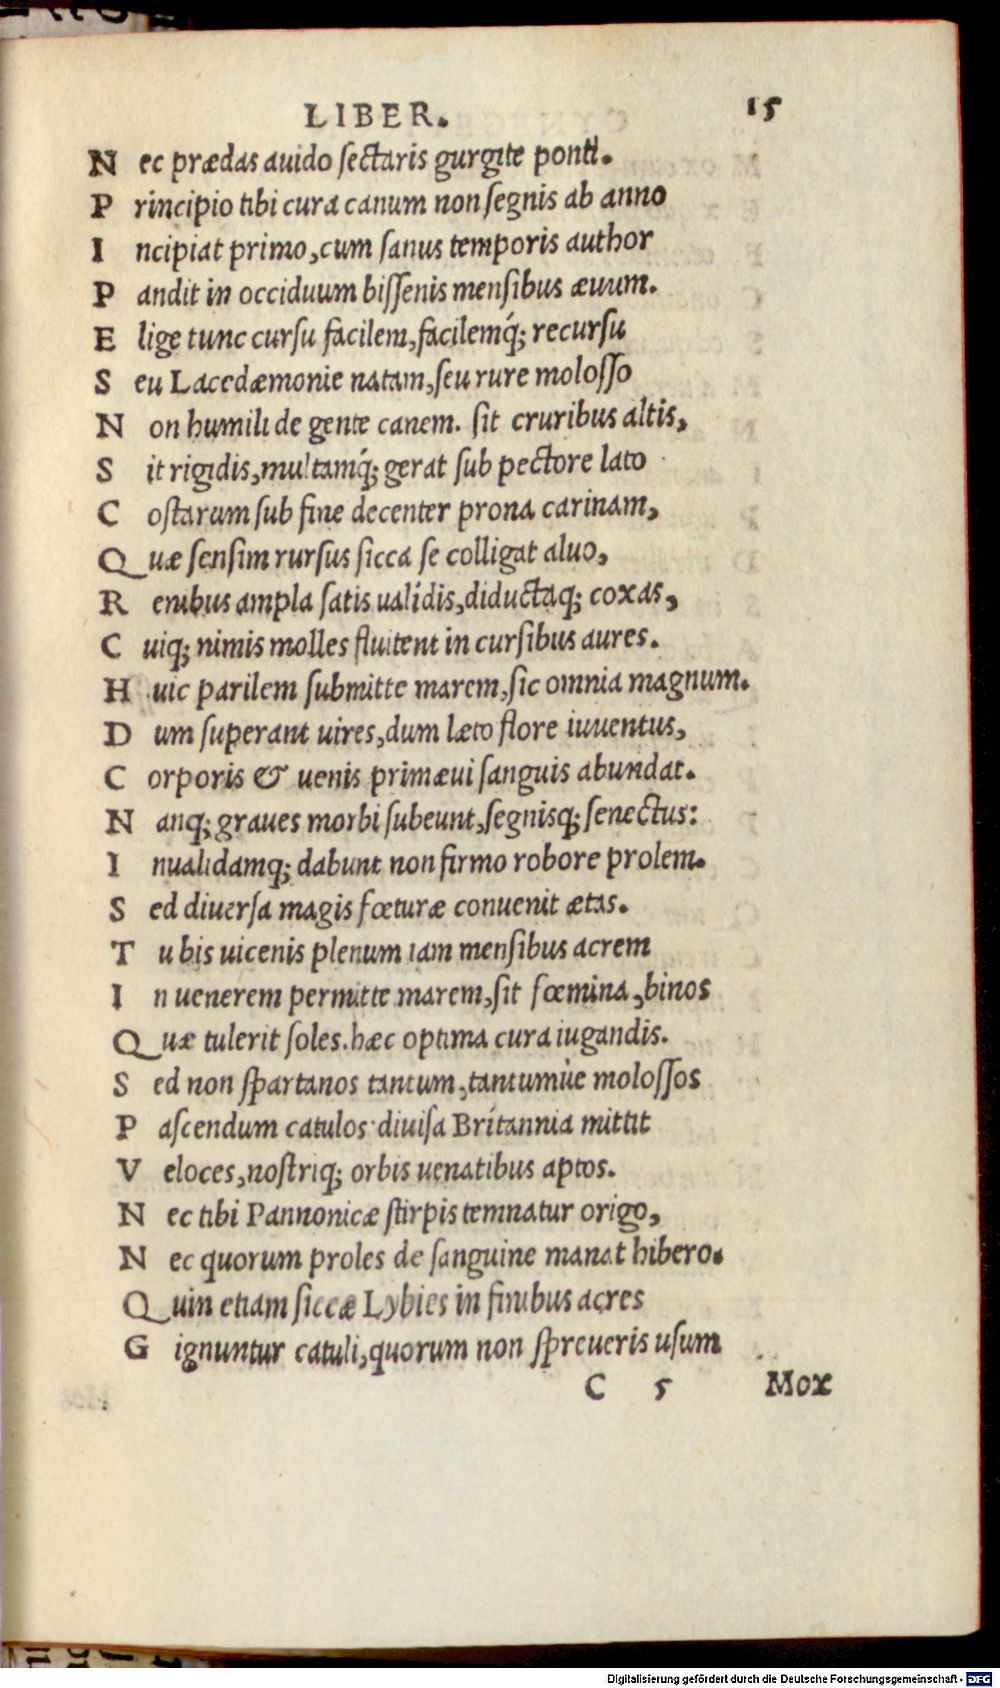 LIBER. 15
Nec prædas auido sectaris gurgite ponti.
Principio tibi cura canum non segnis ab anno
Incipiat primo, cum sanus temporis author
Pandit in occiduum bissenis mensibus æuum.
Elige tunc cursu facilem, facilemq́; recursu
Seu Lacedæmonie natam, seu rure molosso
Non humili de gente canem. sit cruribus altis,
Sit rigidis, multamq́; gerat sub pectore lato
Costarum sub fine decenter prona carinam,
Quæ sensim rursus sicca se colligat aluo,
Renibus ampla satis ualidis, diductaq; coxas,
Cuiq; nimis molles fluitent in cursibus aures.
Huic parilem submitte marem, sic omnia magnum.
Dum superant uires, dum læto flore iuuentus,
Corporis & uenis primæui sanguis abundat.
Nanq; graues morbi subeunt, segnisq; senectus:
Inualidamq; dabunt non firmo robore prolem.
Sed diuersa magis fœturæ conuenit ætas.
Tu bis uicenis plenum iam mensibus acrem
In uenerem permitte marem, sit fœmina, binos
Quæ tulerit soles. hæc optima cura iugandis.
Sed non spartanos tantum, tantumùe molossos
Pascendum catulos diuisa Britannia mittit
Veloces, nostriq; orbis uenatibus aptos.
Nec tibi Pannonicæ stirpis temnatur origo,
Nec quorum proles de sanguine manat hibero.
Quin etiam siccæ Lybies in finibus acres
Gignuntur catuli, quorum non spreueris usum
C 5 Mox
Digitalisierung gefördert durch die Deutsche Forschungsgemeinschaft - DFG